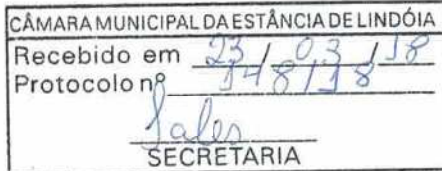 CÂMARA MUNICIPAL DA ESTÂNCIA DE LINDÓIA
Recebido em 23/03/18
Protocolo nº 148/18
Sales
SECRETARIA